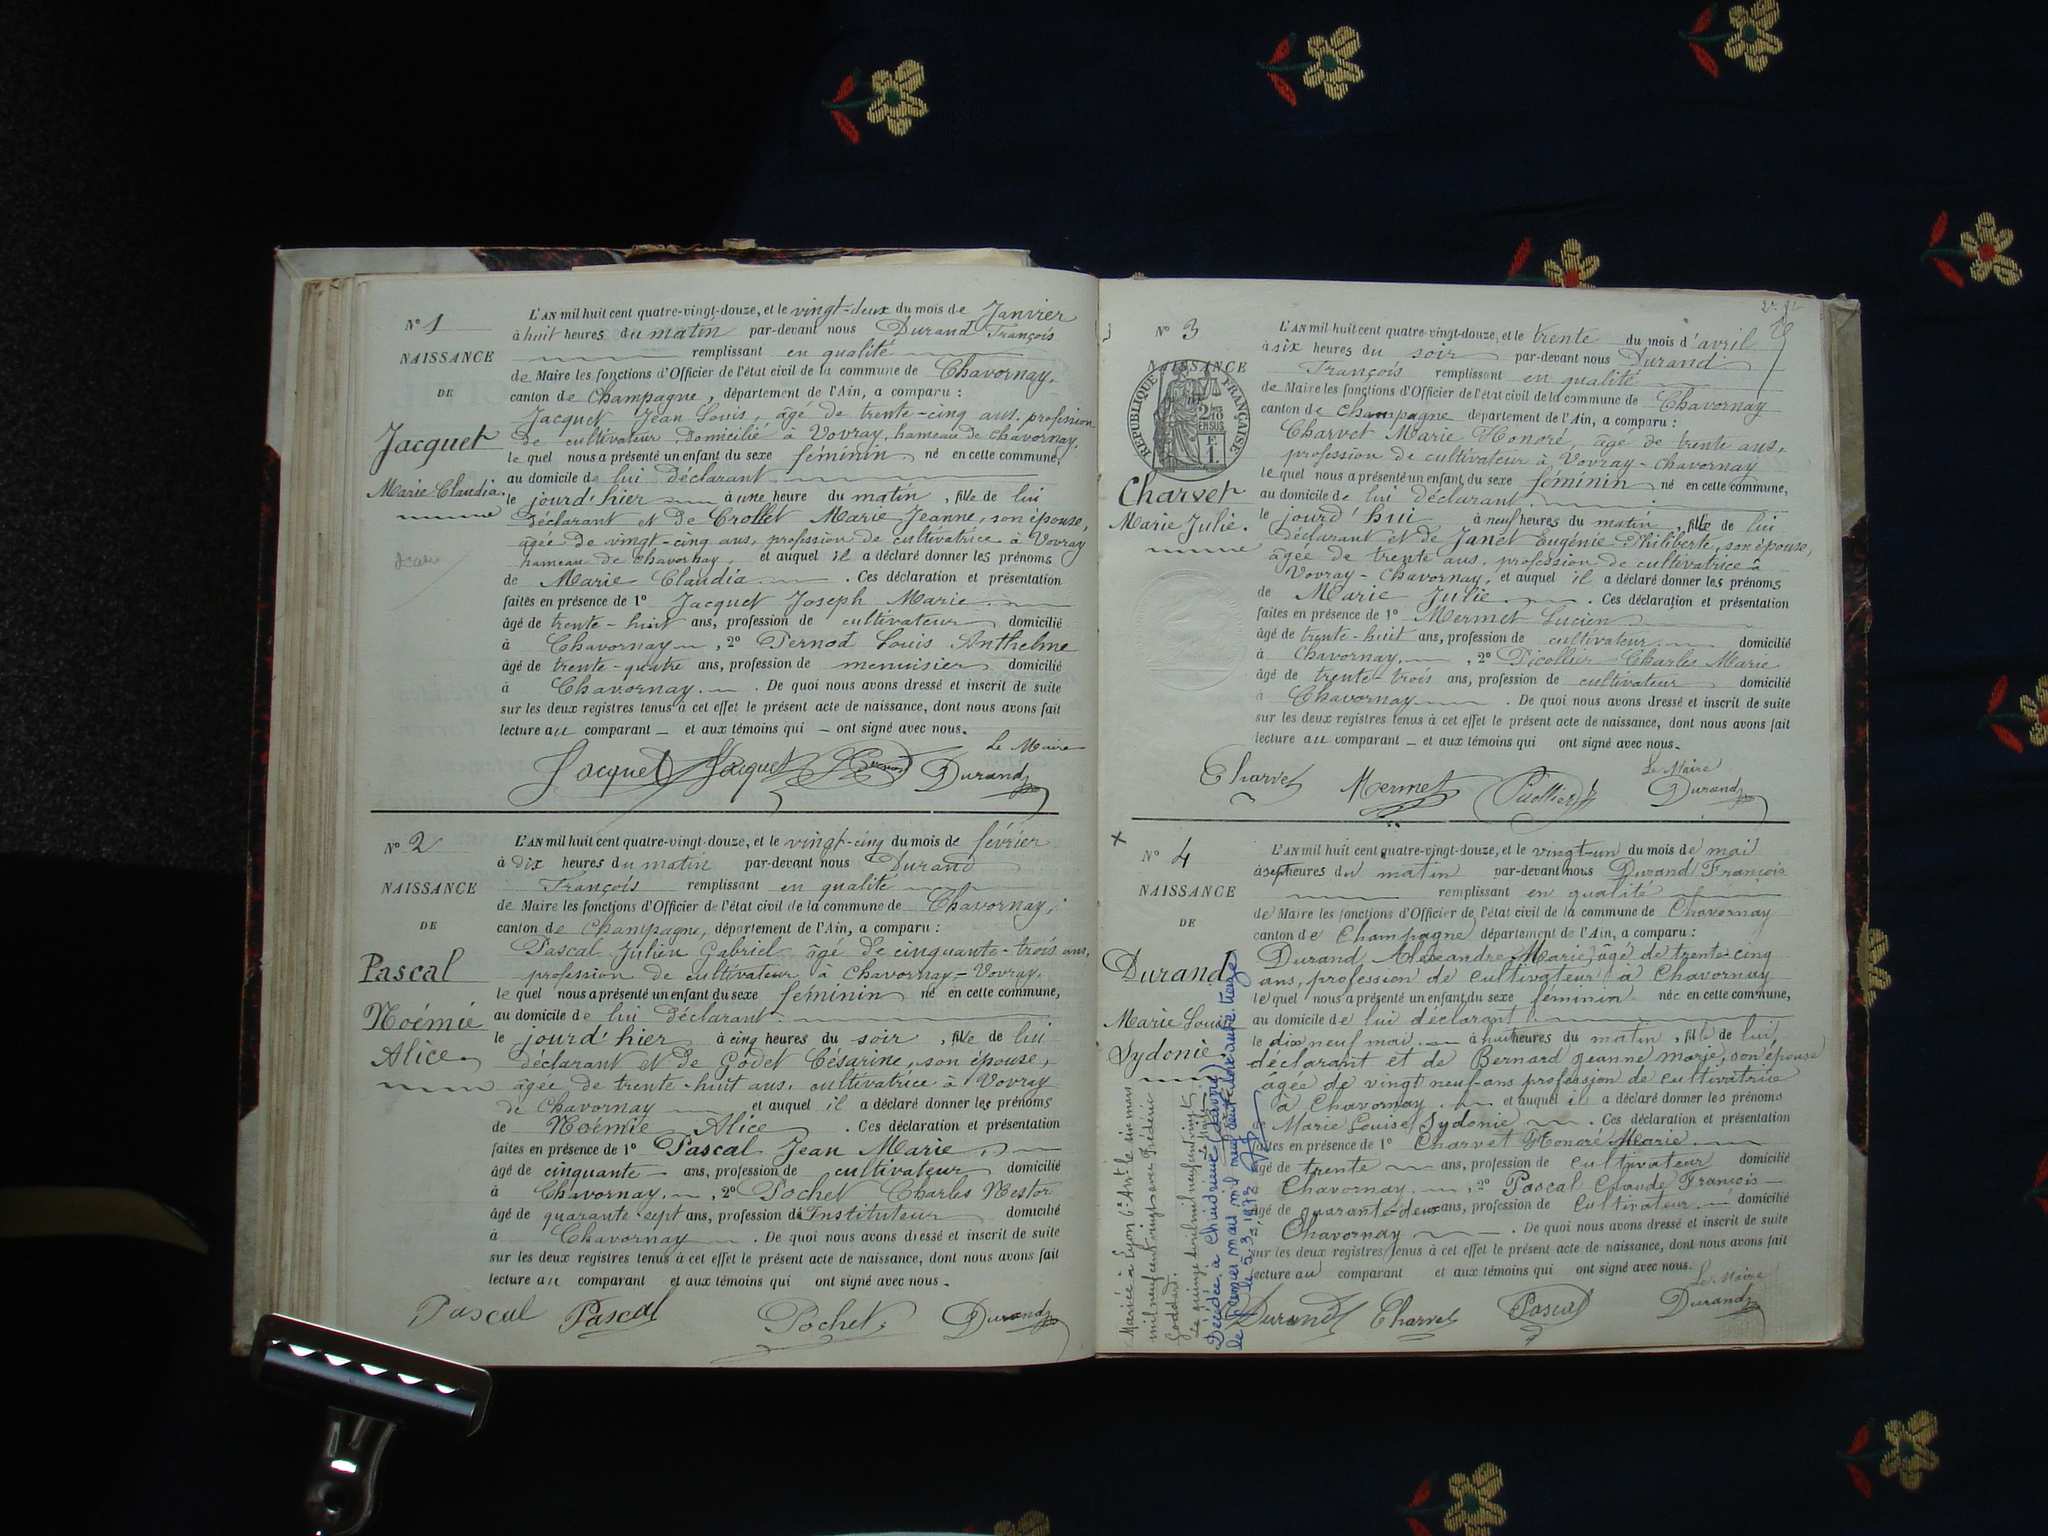 N° 1
NAISSANCE
DE
Jacquet
Marie Claudia.
L'AN mil huit cent quatre-vingt-douze, et le vingt-deux du mois de Janvier
à huit heures du matin par-devant nous Durand François
remplissant en qualité
de Maire les fonctions d'Officier de l'état civil de la commune de Chavornay,
canton de Champagne, département de l'Ain, a comparu :
Jacquet Jean Louis, âgé de trente-cinq ans, profession
de cultivateur domicilié à Vovray, hameau de Chavornay,
le quel nous a présenté un enfant du sexe féminin né en cette commune,
au domicile de lui déclarant
le jourd'hier à une heure du matin, fille de lui
déclarant et de Crollet Marie Jeanne, son épouse,
âgée de vingt-cinq ans, profession de cultivatrice à Vovray
hameau de Chavornay, et auquel il a déclaré donner les prénoms
de Marie Claudia. Ces déclaration et présentation
faites en présence de 1° Jacquet Joseph Marie
âgé de trente-huit ans, profession de cultivateur domicilié
à Chavornay, 2° Pernod Louis Anthelme
âgé de trente-quatre ans, profession de menuisier domicilié
à Chavornay. De quoi nous avons dressé et inscrit de suite
sur les deux registres tenus à cet effet le présent acte de naissance, dont nous avons fait
lecture au comparant et aux témoins qui ont signé avec nous.
Le Maire
Jacquet Jacquet Pernod Durand
N° 2
NAISSANCE
DE
Pascal
Noémie
Alice.
L'AN mil huit cent quatre-vingt-douze, et le vingt-cinq du mois de février
à dix heures du matin par-devant nous Durand
François remplissant en qualité
de Maire les fonctions d'Officier de l'état civil de la commune de Chavornay,
canton de Champagne, département de l'Ain, a comparu :
Pascal Julien Gabriel âgé de cinquante-trois ans,
profession de cultivateur à Chavornay-Vovray,
le quel nous a présenté un enfant du sexe féminin né en cette commune,
au domicile de lui déclarant
le jourd'hier à cinq heures du soir, fille de lui
déclarant et de Godet Césarine, son épouse,
âgée de trente-huit ans, cultivatrice à Vovray
de Chavornay et auquel il a déclaré donner les prénoms
de Noémie Alice. Ces déclaration et présentation
faites en présence de 1° Pascal Jean Marie,
âgé de cinquante ans, profession de cultivateur domicilié
à Chavornay, 2° Pochet Charles Nestor
âgé de quarante-sept ans, profession de Instituteur domicilié
à Chavornay. De quoi nous avons dressé et inscrit de suite
sur les deux registres tenus à cet effet le présent acte de naissance, dont nous avons fait
lecture au comparant et aux témoins qui ont signé avec nous.
Pascal Pascal Pochet Durand
N° 3
NAISSANCE
REPUBLIQUE FRANÇAISE
Charvet
Marie Julie.
L'AN mil huit cent quatre-vingt-douze, et le trente du mois d'avril
à six heures du soir par-devant nous Durand
François remplissant en qualité
de Maire les fonctions d'Officier de l'état civil de la commune de Chavornay
canton de Champagne département de l'Ain, a comparu :
Charvet Marie Honoré, âgé de trente ans,
profession de cultivateur à Vovray-Chavornay
le quel nous a présenté un enfant du sexe féminin né en cette commune,
au domicile de lui déclarant
le jourd'hui à neuf heures du matin, fille de lui
déclarant et de Janet Eugénie Philiberte, son épouse,
âgée de trente ans, profession de cultivatrice à
Vovray-Chavornay, et auquel il a déclaré donner les prénoms
de Marie Julie. Ces déclaration et présentation
faites en présence de 1° Mermet Lucien
âgé de trente-huit ans, profession de cultivateur domicilié
à Chavornay, 2° Picollier Charles Marie
âgé de trente-trois ans, profession de cultivateur domicilié
à Chavornay. De quoi nous avons dressé et inscrit de suite
sur les deux registres tenus à cet effet le présent acte de naissance, dont nous avons fait
lecture au comparant et aux témoins qui ont signé avec nous.
Le Maire
Charvet Mermet Picollier Durand
N° 4
NAISSANCE
DE
Durand
Marie Louise
Sydonie.
L'AN mil huit cent quatre-vingt-douze, et le vingt-un du mois de mai
à sept heures du matin par-devant nous Durand François
remplissant en qualité
de Maire les fonctions d'Officier de l'état civil de la commune de Chavornay
canton de Champagne département de l'Ain, a comparu :
Durand Alexandre Marie, âgé de trente-cinq
ans, profession de cultivateur à Chavornay
le quel nous a présenté un enfant du sexe féminin née en cette commune,
au domicile de lui déclarant
le dix neuf mai à huit heures du matin, fille de lui
déclarant et de Bernard Jeanne Marie, son épouse
âgée de vingt neuf ans profession de cultivatrice
à Chavornay. et auquel il a déclaré donner les prénoms
Marie Louise Sydonie. Ces déclaration et présentation
faites en présence de 1° Charvet Honoré Marie
âgé de trente ans, profession de cultivateur domicilié
Chavornay, 2° Pascal Claude François
âgé de quarante-deux ans, profession de cultivateur domicilié
Chavornay. De quoi nous avons dressé et inscrit de suite
sur les deux registres tenus à cet effet le présent acte de naissance, dont nous avons fait
lecture au comparant et aux témoins qui ont signé avec nous.
Le Maire
Durand Charvet Pascal Durand
Mariée à Lyon 6e Arrt le six mars
mil neuf cent vingt avec Frédéric
Goddard.
Le quinze avril mil neuf cent vingt
Décédée à Chindrieux (Savoie)
le premier mars mil neuf cent soixante treize
le 5.3.1973